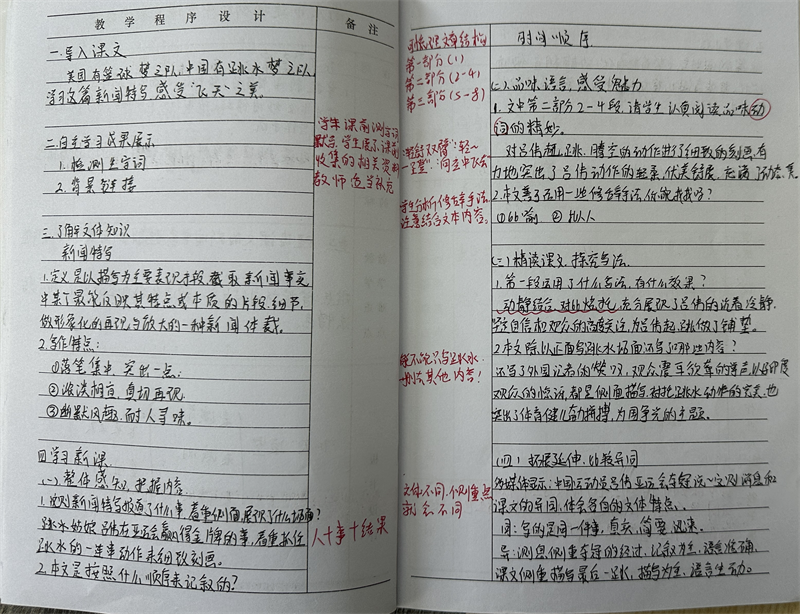 教学程序设计
备注
一.导入课文
美国有篮球梦之队,中国有跳水梦之队
学习这篇新闻特写,感受"飞天"之美。
二.自主学习成果展示
1.检测生字词
2.背景链接
三.了解文体知识
新闻特写
1.定义:是以描写为主要表现手段,截取新闻事实
中某个最能反映其特点或本质的片段、细节,
做形象化的再现与放大的一种新闻体裁。
2.写作特点:
①落笔集中,突出一点;
②浓淡相宜,真切再现
③幽默风趣,耐人寻味。
四.学习新课
(一).整体感知,把握内容
1.这则新闻特写报道了什么事,着重
跳水姑娘吕伟在亚运会赢得金牌的事,着重抓住
跳水的一连串动作来细致刻画。
2.本文是按照什么顺序来记叙的?
学生课前
默写,学生展示课前
收集的相关资料
教师适当补充
人+事+结果
文章结构
第一部分(1)
第二部分(2-4)
第三部分(5-8)
"轻舒双臂""轻~
学生分析修辞手法,
注意结合文本内容。
能不能只写跳水
删去其他内容!
文体不同,侧重点
就会不同
时间顺序
(二)品味语言,感受魅力
1.文中第二部分2-4段,请学生认真阅读品味动
词的精妙。
对吕伟起跳、腾空的动作进行了细致的刻画,有
力地突出了吕伟动作的轻柔、优美舒展,充满了动态美
2.本文善于运用一些修辞手法,你能找找吗?
①比喻 ②拟人
(三)精读课文,探究写法
1.第一段运用了什么写法,有什么效果?
动静结合,对比烘托,充分展现了吕伟的沉着冷静,
自信和观众的高度关注,为吕伟起跳做了铺垫。
2.本文除以正面写跳水场面还写了哪些内容?
还写了外国记者的赞叹,观众震耳欲聋的掌声,以及印度
观众的惊讶,都是侧面描写,衬托跳水动作的完美,也
突出了体育健儿奋力拼搏,为国争光的主题。
(四)拓展延伸,比较异同
多媒体展示:中国运动员吕伟亚运会夺冠这一定则消息和
课文的异同,体会各自的文体特点。
同:写的是同一件事,真实,简要,迅速。
异:消息侧重夺冠的经过,记叙为主,语言准确,
课文侧重描写最后一跳,描写为主,语言生动。